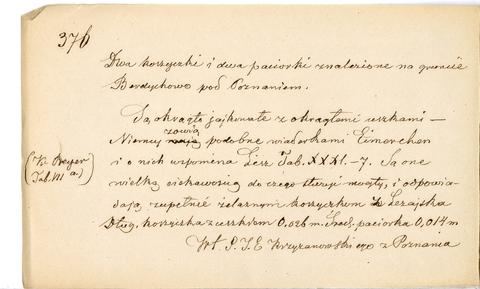 376
Dwa koszyczki i dwa paciorki znalezione na gruncie
Berdychowo pod Poznaniem.
Są okrągłe jajkowate z okrągłemi uszkami –
zowią
Niemcy podobne wiaderkami Eimerchen
(K. Beyer
i o nich wspomina Tab. XXXI. – 7. Są one
Tab. VII a.)
wielką ciekawością do czego służyć mogły, i odpowia-
dają zupełnie żelaznym koszyczkom z Leżajska
Dług. koszyczka z uszkiem 0,026 m. Śred. paciorka 0,014 m
Wł. P. J. E. Krzyżanowskiego z Poznania